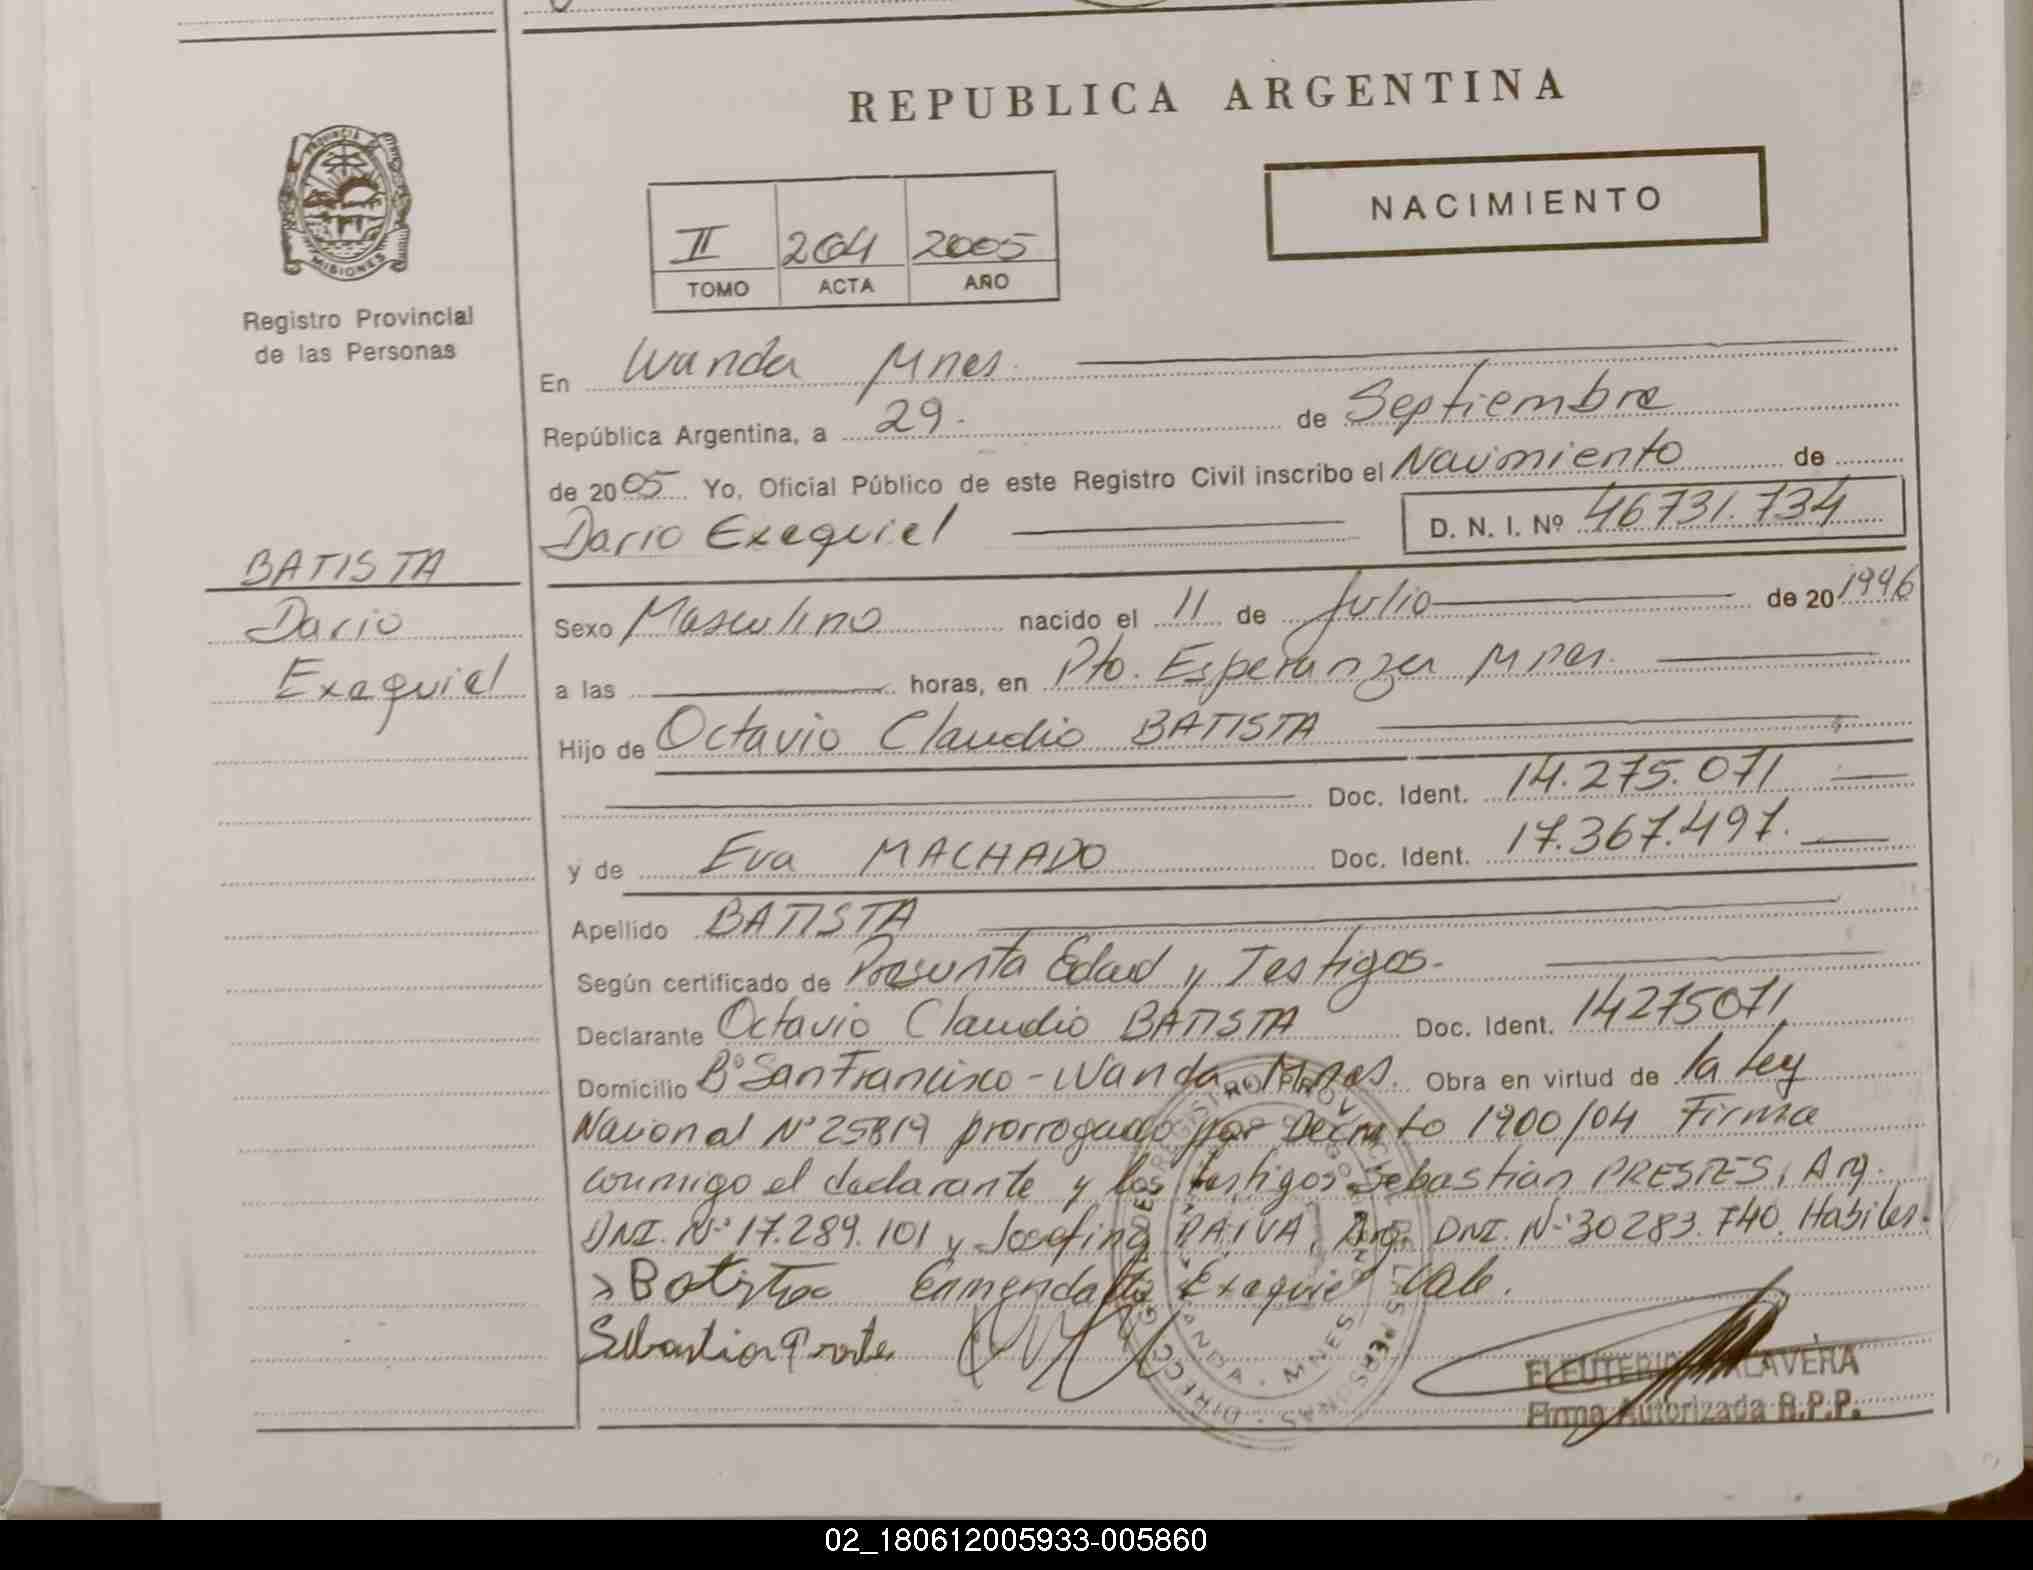 REPUBLICA ARGENTINA
PROVINCIA
MISIONES
Registro Provincial
de las Personas
NACIMIENTO
II 264 2005
TOMO ACTA AÑO
En Wanda Mnes.
República Argentina, a 29. de Septiembre
de 2005 Yo, Oficial Público de este Registro Civil inscribo el Nacimiento de
Dario Exequiel D. N. I. Nº 46731.734
BATISTA
Dario
Exequiel
Sexo Masculino nacido el 11 de Julio de 20 1996
a las horas, en Pto. Esperanza Mnes.
Hijo de Octavio Claudio BATISTA
Doc. Ident. 14.275.071
y de Eva MACHADO Doc. Ident. 17.367.497.
Apellido BATISTA
Según certificado de Presunta Edad y Testigos.
Declarante Octavio Claudio BATISTA Doc. Ident. 14275071
Domicilio Bº San Francisco - Wanda Mnes. Obra en virtud de la Ley
Nacional Nº 25819 prorrogado por Decreto 1900/04 Firma
conmigo el declarante y los testigos Sebastian PRESTES, Arg.
DNI. Nº 17.289.101 y Josefina PAIVA, Arg. DNI. Nº 30283.740. Habiles.
> Batista Enmendado Exequiel Vale.
Sebastian Preste
ELEUTERIO TALAVERA
Firma Autorizada R.P.P.
02_180612005933-005860